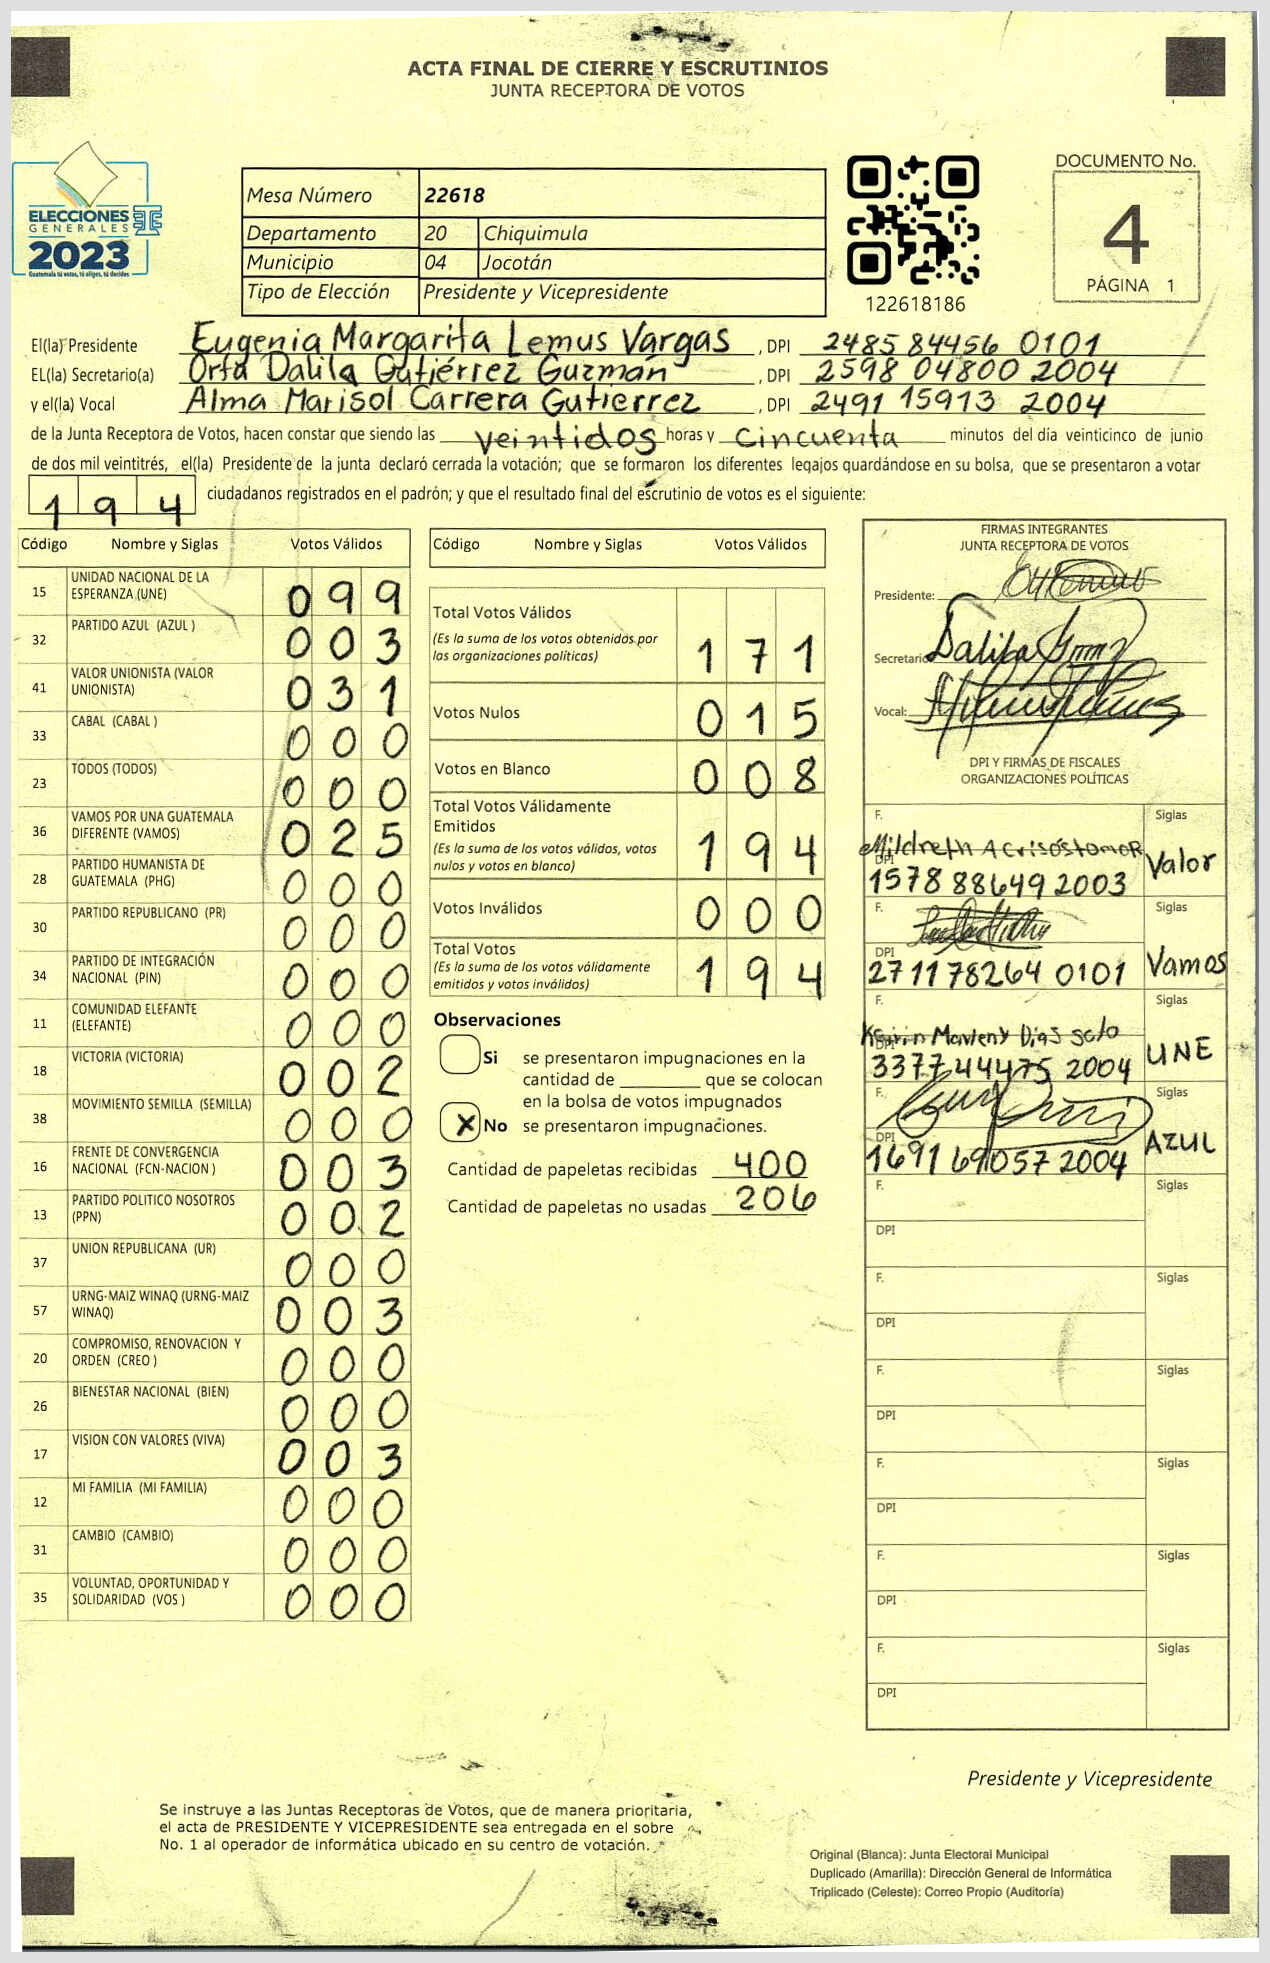 ACTA FINAL DE CIERRE Y ESCRUTINIOS
JUNTA RECEPTORA DE VOTOS
ELECCIONES
GENERALES
2023
Guatemala tú votas, tú eliges, tú decides
Mesa Número 22618
Departamento 20 Chiquimula
Municipio 04 Jocotán
Tipo de Elección Presidente y Vicepresidente
122618186
DOCUMENTO No.
4
PÁGINA 1
El(la) Presidente Eugenia Margarita Lemus Vargas , DPI 2485 84456 0101
EL(la) Secretario(a) Orfa Dalila Gutiérrez Guzmán , DPI 2598 04800 2004
y el(la) Vocal Alma Marisol Carrera Gutierrez , DPI 2491 15913 2004
de la Junta Receptora de Votos, hacen constar que siendo las veintidos horas y cincuenta minutos del día veinticinco de junio
de dos mil veintitrés, el(la) Presidente de la junta declaró cerrada la votación; que se formaron los diferentes legajos guardándose en su bolsa, que se presentaron a votar
194 ciudadanos registrados en el padrón; y que el resultado final del escrutinio de votos es el siguiente:
Código Nombre y Siglas Votos Válidos
15 UNIDAD NACIONAL DE LA ESPERANZA (UNE) 099
32 PARTIDO AZUL (AZUL ) 003
41 VALOR UNIONISTA (VALOR UNIONISTA) 031
33 CABAL (CABAL ) 000
23 TODOS (TODOS) 000
36 VAMOS POR UNA GUATEMALA DIFERENTE (VAMOS) 025
28 PARTIDO HUMANISTA DE GUATEMALA (PHG) 000
30 PARTIDO REPUBLICANO (PR) 000
34 PARTIDO DE INTEGRACIÓN NACIONAL (PIN) 000
11 COMUNIDAD ELEFANTE (ELEFANTE) 000
18 VICTORIA (VICTORIA) 002
38 MOVIMIENTO SEMILLA (SEMILLA) 000
16 FRENTE DE CONVERGENCIA NACIONAL (FCN-NACION ) 003
13 PARTIDO POLITICO NOSOTROS (PPN) 002
37 UNION REPUBLICANA (UR) 000
57 URNG-MAIZ WINAQ (URNG-MAIZ WINAQ) 003
20 COMPROMISO, RENOVACION Y ORDEN (CREO ) 000
26 BIENESTAR NACIONAL (BIEN) 000
17 VISION CON VALORES (VIVA) 003
12 MI FAMILIA (MI FAMILIA) 000
31 CAMBIO (CAMBIO) 000
35 VOLUNTAD, OPORTUNIDAD Y SOLIDARIDAD (VOS ) 000
Código Nombre y Siglas Votos Válidos
Total Votos Válidos 171
(Es la suma de los votos obtenidos por
las organizaciones políticas)
Votos Nulos 015
Votos en Blanco 008
Total Votos Válidamente
Emitidos 194
(Es la suma de los votos válidos, votos
nulos y votos en blanco)
Votos Inválidos 000
Total Votos 194
(Es la suma de los votos válidamente
emitidos y votos inválidos)
Observaciones
Si se presentaron impugnaciones en la
cantidad de ________ que se colocan
en la bolsa de votos impugnados
X No se presentaron impugnaciones.
Cantidad de papeletas recibidas 400
Cantidad de papeletas no usadas 206
FIRMAS INTEGRANTES
JUNTA RECEPTORA DE VOTOS
Presidente:
Secretario
Vocal:
DPI Y FIRMAS DE FISCALES
ORGANIZACIONES POLÍTICAS
F. Siglas
Mildreth A Crisóstomo R Valor
DPI 1578 88649 2003
F. Siglas
DPI 2711 78264 0101 Vamos
F. Siglas
DPI 3377 44475 2004 UNE
F. Siglas
DPI 1691 69057 2004 AZUL
F. Siglas
DPI
F. Siglas
DPI
F. Siglas
DPI
F. Siglas
DPI
F. Siglas
DPI
F. Siglas
DPI
Presidente y Vicepresidente
Se instruye a las Juntas Receptoras de Votos, que de manera prioritaria,
el acta de PRESIDENTE Y VICEPRESIDENTE sea entregada en el sobre
No. 1 al operador de informática ubicado en su centro de votación.
Original (Blanca): Junta Electoral Municipal
Duplicado (Amarilla): Dirección General de Informática
Triplicado (Celeste): Correo Propio (Auditoría)